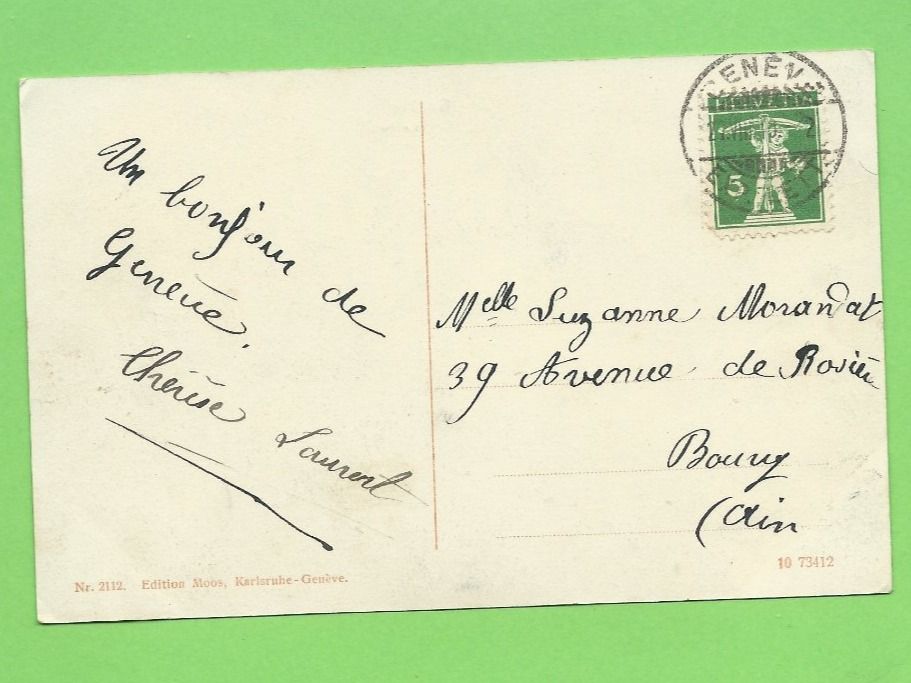 Un bonjour de
Genève.
Thérèse Laurent
GENÈVE
HELVETIA
5
Melle Suzanne Morandat
39 Avenue de Rosière
Bourg
(Ain
Nr. 2112. Edition Moos, Karlsruhe-Genève.
10 73412